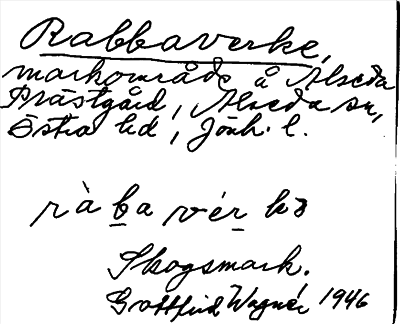 Rabbaverke,
markområde å Alseda
Prästgård, Alseda sn,
Östra hd, Jönk. l.
ràb̲a vér̲kə
Skogsmark.
Gottfrid Wagnér 1946